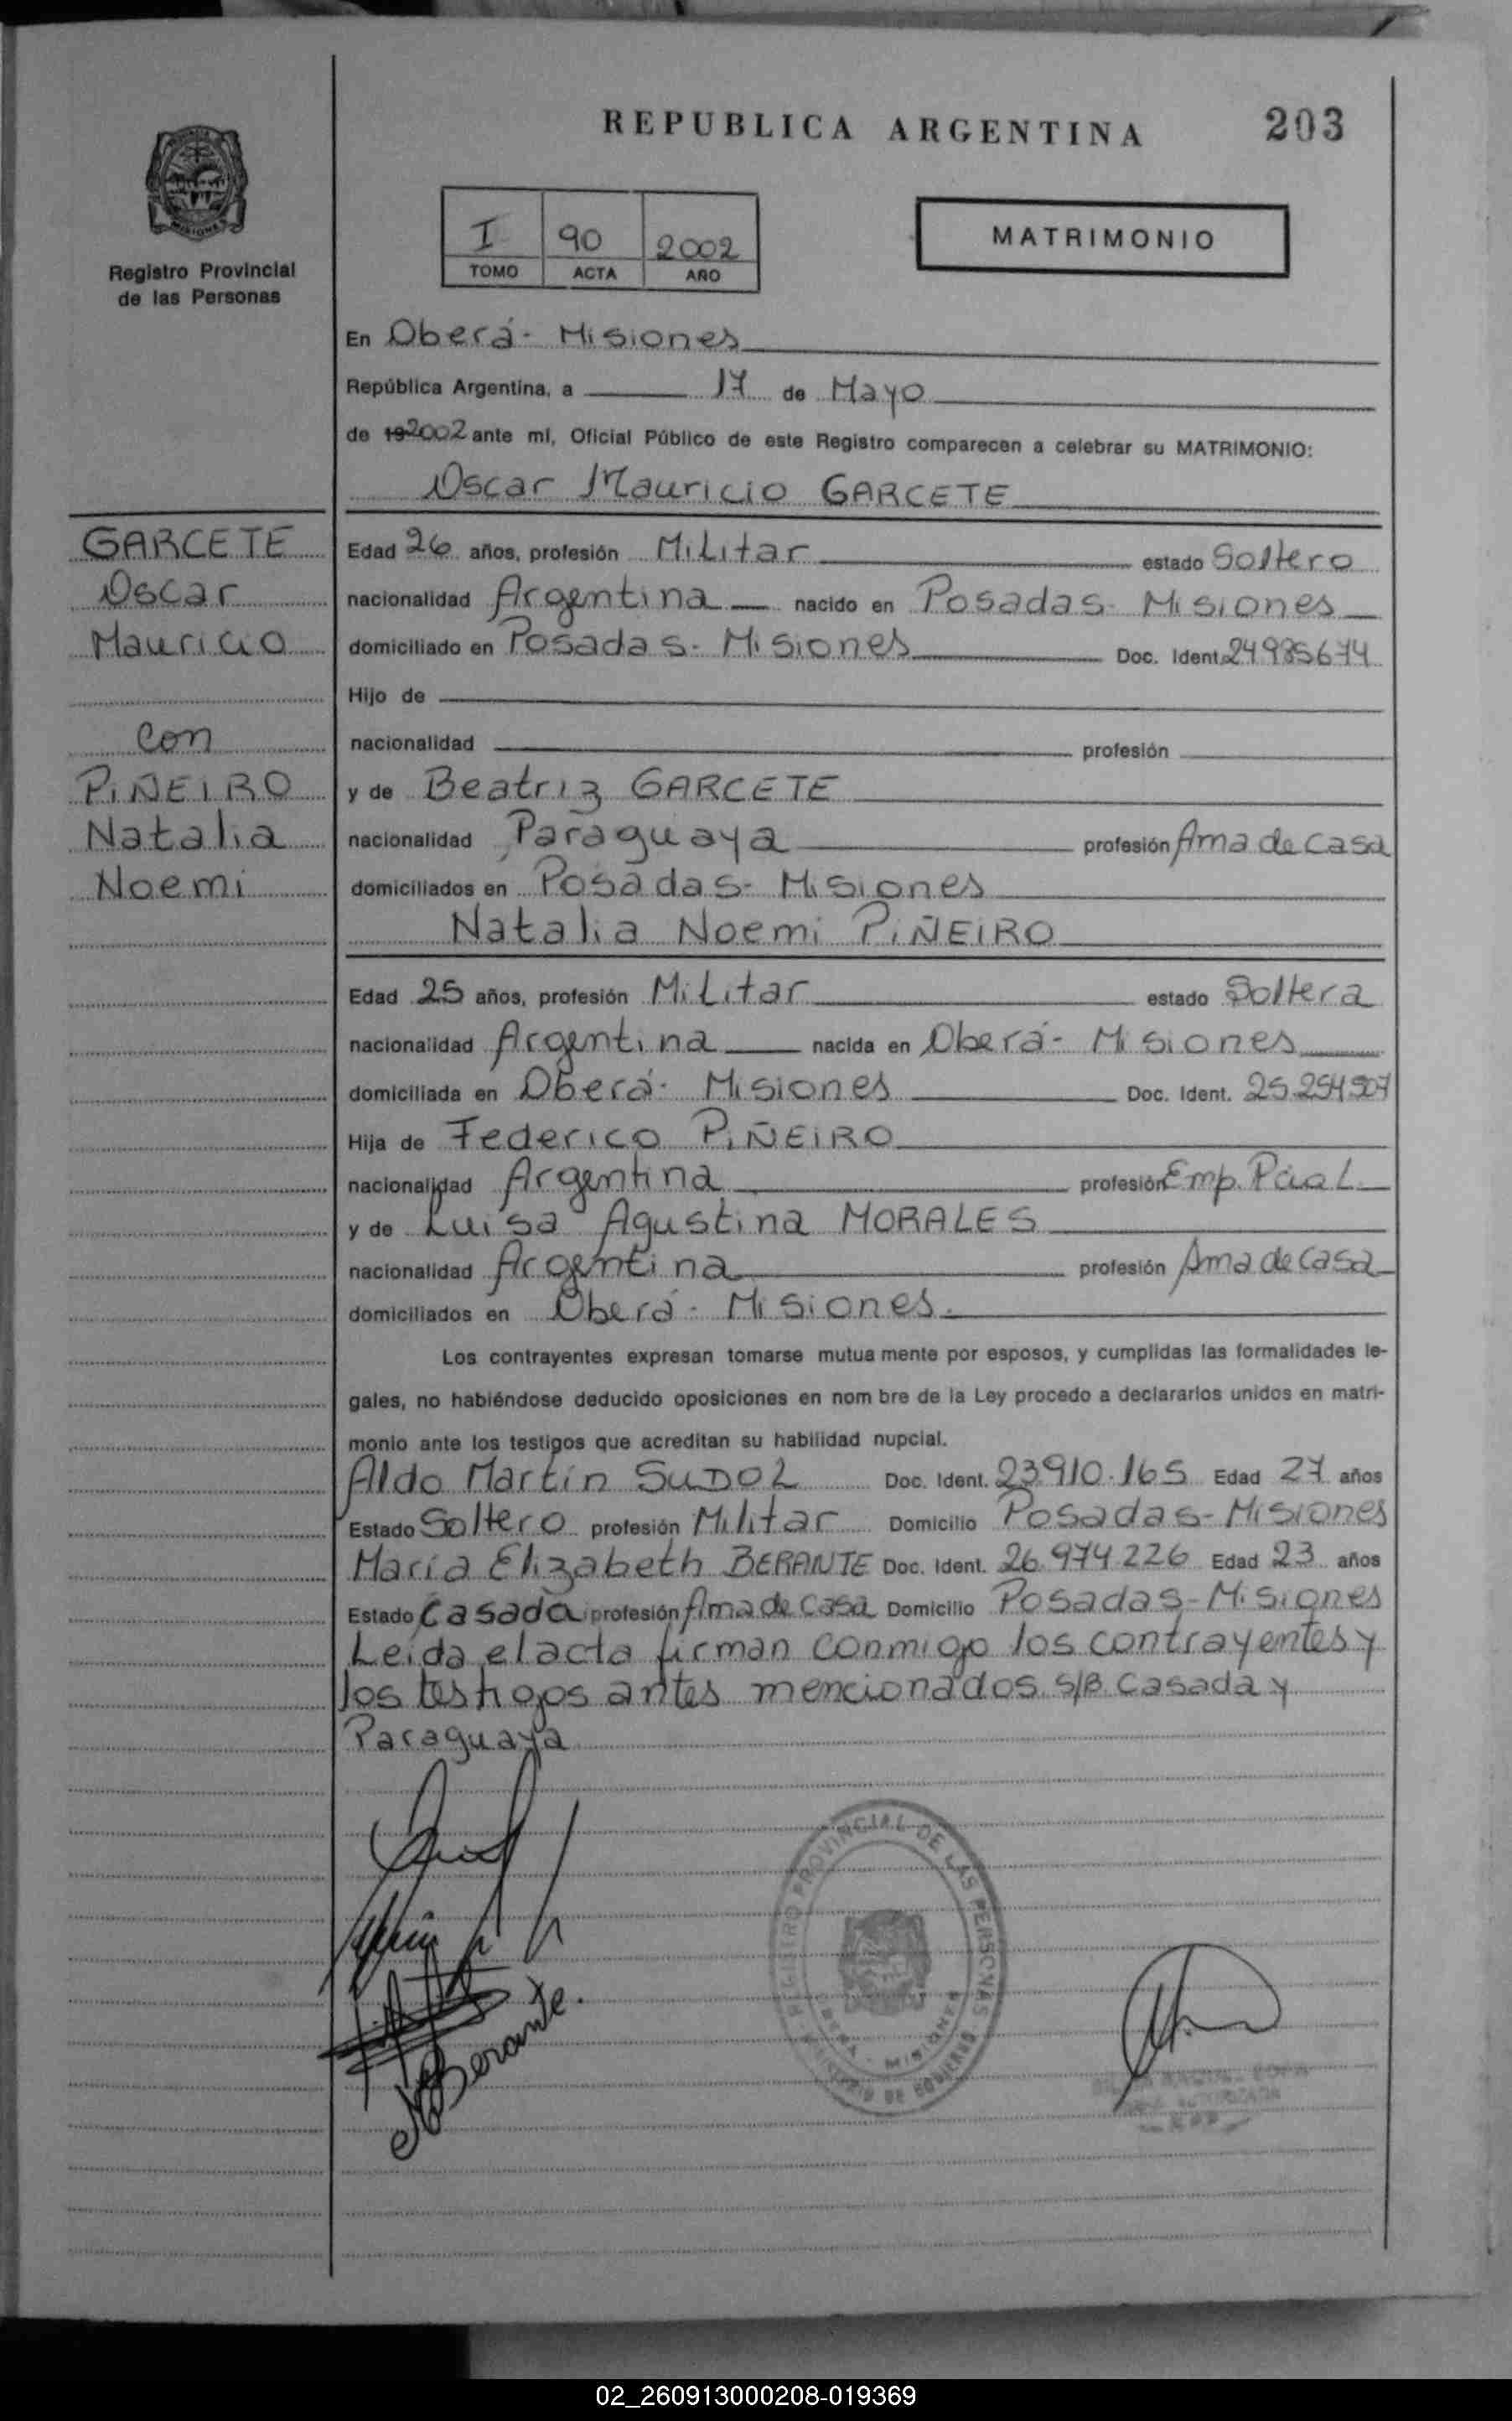 REPUBLICA ARGENTINA
203
Registro Provincial
de las Personas
I 90 2002
TOMO ACTA AÑO
MATRIMONIO
En Oberá - Misiones
República Argentina, a 17 de Mayo
de 192002 ante mí, Oficial Público de este Registro comparecen a celebrar su MATRIMONIO:
Oscar Mauricio GARCETE
GARCETE
Oscar
Mauricio
con
PiÑEIRO
Natalia
Noemi
Edad 26 años, profesión Militar estado Soltero
nacionalidad Argentina nacido en Posadas - Misiones
domiciliado en Posadas - Misiones Doc. Ident. 24985674
Hijo de
nacionalidad profesión
y de Beatriz GARCETE
nacionalidad Paraguaya profesión Ama de casa
domiciliados en Posadas - Misiones
Natalia Noemi PiÑEIRO
Edad 25 años, profesión Militar estado Soltera
nacionalidad Argentina nacida en Oberá - Misiones
domiciliada en Oberá - Misiones Doc. Ident. 25.254507
Hija de Federico PiÑEIRO
nacionalidad Argentina profesión Emp. Pcial.
y de Luisa Agustina MORALES
nacionalidad Argentina profesión Ama de casa
domiciliados en Oberá - Misiones.
Los contrayentes expresan tomarse mutua mente por esposos, y cumplidas las formalidades le-
gales, no habiéndose deducido oposiciones en nom bre de la Ley procedo a declararlos unidos en matri-
monio ante los testigos que acreditan su habilidad nupcial.
Aldo Martín SUDOL Doc. Ident. 23910.165 Edad 27 años
Estado Soltero profesión Militar Domicilio Posadas - Misiones
María Elizabeth BERANTE Doc. Ident. 26.974226 Edad 23 años
Estado Casada profesión Ama de casa Domicilio Posadas - Misiones
Leida el acta firman conmigo los contrayentes y
los testigos antes mencionados. s/B Casada y
Paraguaya
Berante.
REGISTRO PROVINCIAL DE LAS PERSONAS
MINISTERIO DE GOBIERNO
OBERA - MISIONES
02_260913000208-019369